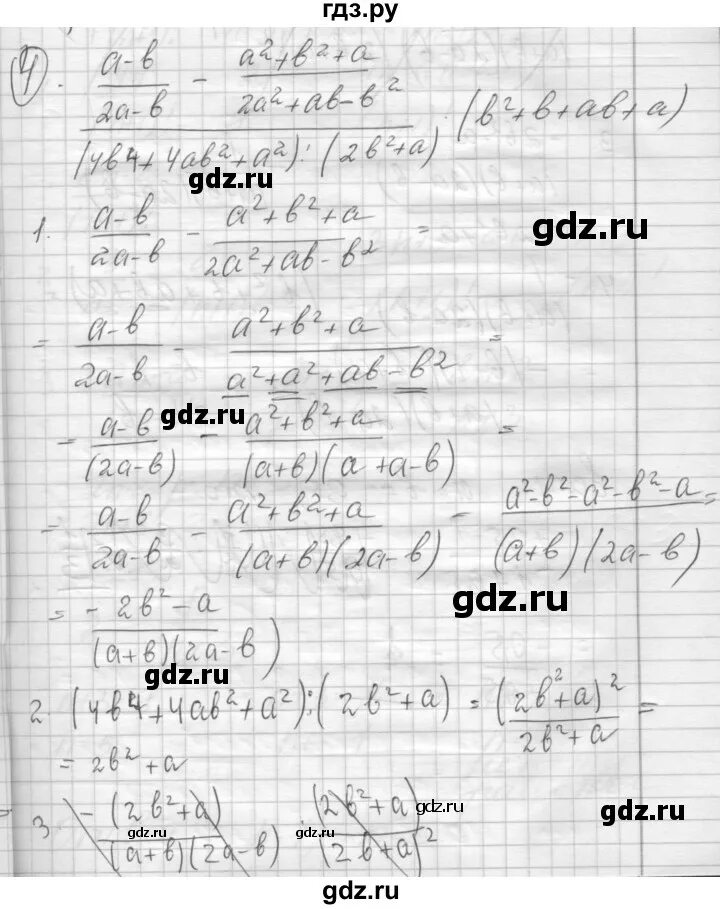 гдз.ру
4. (a-b)/(2a-b) - (a²+b²+a)/(2a²+ab-b²)
/ (4b⁴+4ab²+a²):(2b²+a) · (b²+b+ab+a)
gdz.ru
1. (a-b)/(2a-b) - (a²+b²+a)/(2a²+ab-b²) =
gdz.ru
= (a-b)/(2a-b) - (a²+b²+a)/(a²+a²+ab-b²) =
gdz.ru
= (a-b)/(2a-b) - (a²+b²+a)/((a+b)(a+a-b)) =
= (a-b)/(2a-b) - (a²+b²+a)/((a+b)(2a-b)) = (a²-b²-a²-b²-a)/((a+b)(2a-b)) =
gdz.ru
= (-2b²-a)/((a+b)(2a-b))
gdz.ru
2 (4b⁴+4ab²+a²):(2b²+a) = (2b²+a)²/(2b²+a) =
= 2b²+a
gdz.ru
gdz.ru
3 -(2b²+a)/((a+b)(2a-b)) : (2b²+a)/(2b+a)²
gdz.ru
gdz.ru
gdz.ru